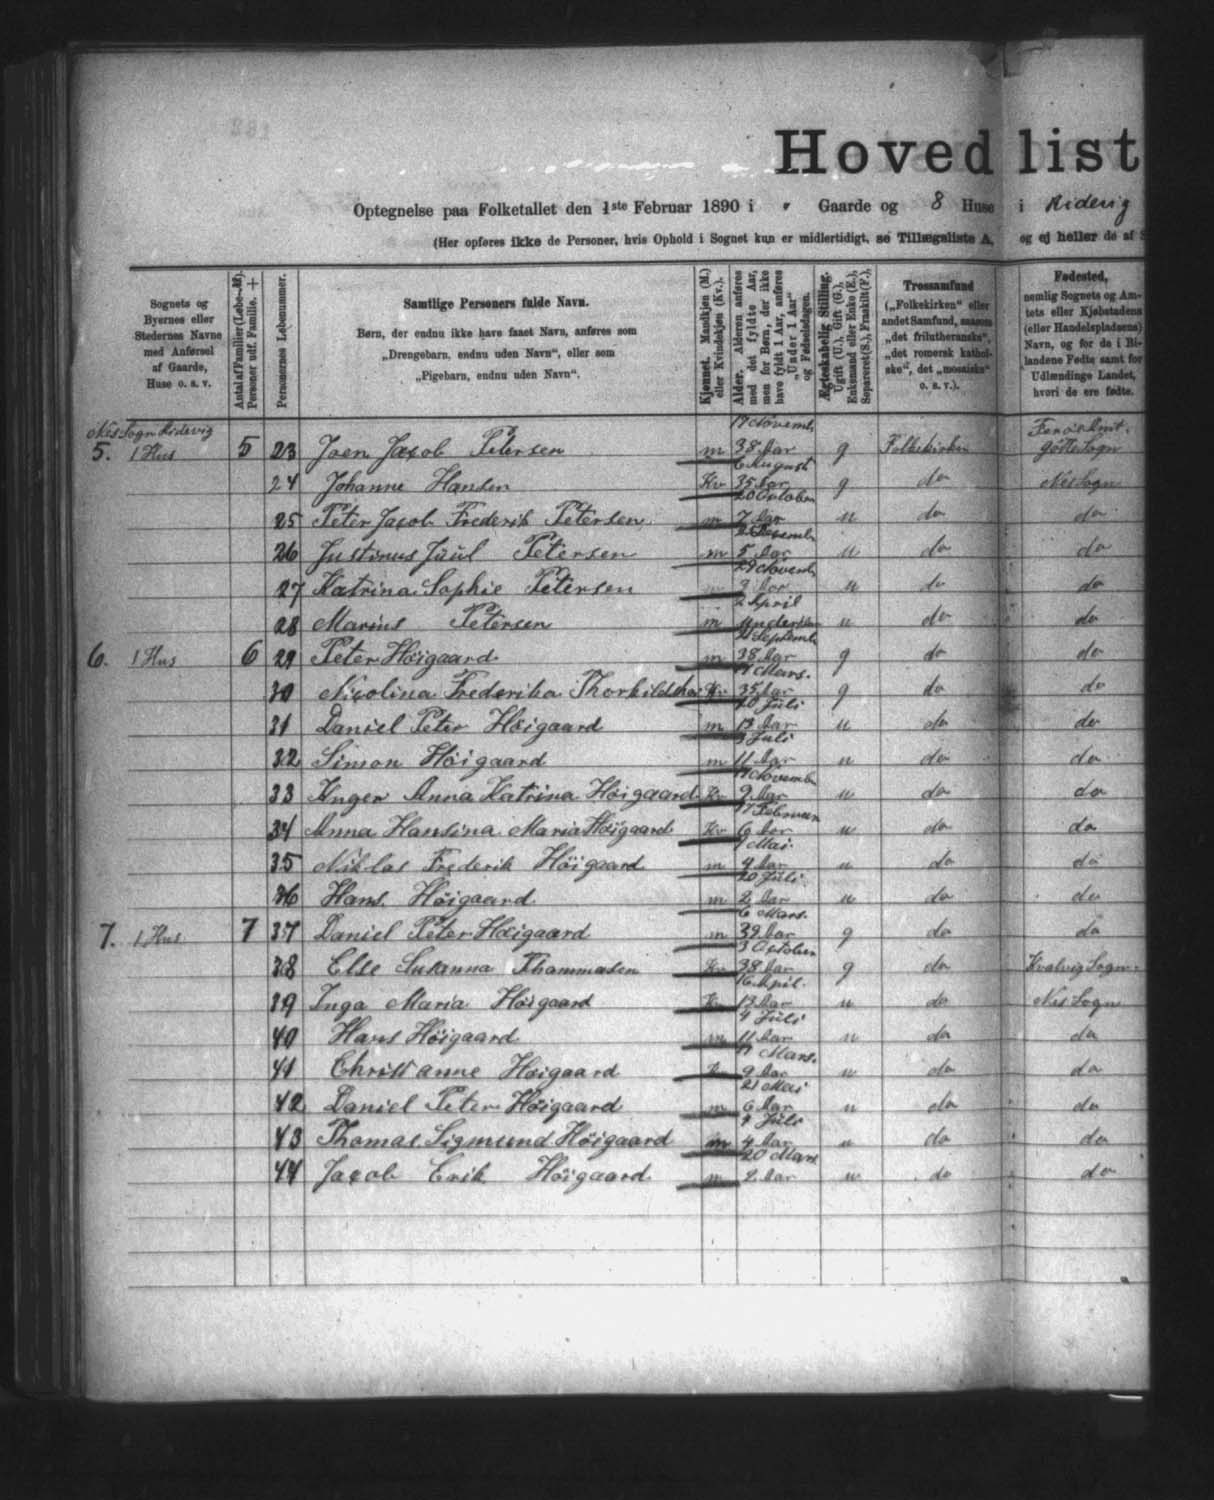 Hovedlist
Optegnelse paa Folketallet den 1ste Februar 1890 i " Gaarde og 8 Huse i Riderig
(Her opføres ikke de Personer, hvis Ophold i Sognet kun er midlertidigt, se Tillægsliste A, og ej heller de af S
Sognets og Byernes eller Stedernes Navne med Anførsel af Gaarde, Huse o. s. v.
Antal af Familier (Løbe-№). Personer udf. Familie. +
Personernes Løbenummer.
Samtlige Personers fulde Navn.
Børn, der endnu ikke have faaet Navn, anføres som
„Drengebarn, endnu uden Navn", eller som
„Pigebarn, endnu uden Navn".
Kjønnet. Mandkjøn (M.) eller Kvindekjøn (Kv.).
Alder. Alderen anføres med det fyldte Aar, men for Børn, der ikke have fyldt 1 Aar, anføres „Under 1 Aar" og Fødselsdagen.
Ægteskabelig Stilling. Ugift (U.), Gift (G.), Enkemand eller Enke (E.), Separeret (S.), Fraskilt (F.).
Trossamfund („Folkekirken" eller andet Samfund, saasom „det frilutheranske", „det romersk katholske", det „mosaiske" o. s. v.).
Fødested, nemlig Sognets og Amtets eller Kjøbstadens (eller Handelspladsens) Navn, og for de i Bilandene Fødte samt for Udlændinge Landet, hvori de ere fødte.
Nes Sogn Ridevig 17 Novemb. Færøs Amt.
5. 1 Hus 5 23 Joen Jacob Petersen m 38 Aar g Folkekirken Gøtte Sogn
6 August
24 Johanne Hansen Kv 35 Aar g do Nes Sogn
20 October
25 Peter Jacob Frederik Petersen m 7 Aar u do do
26 Justinus Juul Petersen m 5 Aar u do do
29 Novemb
27 Katrina Sophie Petersen 3 Aar u do do
2 April
28 Marius Petersen m under 1 Aar u do do
Septemb
6. 1 Hus 6 29 Peter Høigaard m 38 Aar g do do
Mars.
30 Nicolina Frederika Thorkildsen Kv 35 Aar g do do
20 Juli
31 Daniel Peter Høigaard m 13 Aar u do do
3 Juli
32 Simon Høigaard m 11 Aar u do do
Novemb
33 Inger Anna Katrina Høigaard Kv 9 Aar u do do
17 Februar
34 Anna Hansina Maria Høigaard Kv 6 Aar u do do
Mai.
35 Niklas Frederik Høigaard m 4 Aar u do do
20 Juli
36 Hans Høigaard m 2 Aar u do do
6 Mars.
7. 1 Hus 7 37 Daniel Peter Høigaard m 39 Aar g do do
3 October
38 Else Susanna Thommasen Kv 38 Aar g do Kvalvig Sogn.
16 April.
39 Inga Maria Høigaard Kv 13 Aar u do Nes Sogn
4 Juli
40 Hans Høigaard m 11 Aar u do do
Mars.
41 Christianne Høigaard Kv 9 Aar u do do
21 Mai
42 Daniel Peter Høigaard m 6 Aar u do do
Juli
43 Thomas Sigmund Høigaard m 4 Aar u do do
20 Mars
44 Jacob Erik Høigaard m 2 Aar u do do